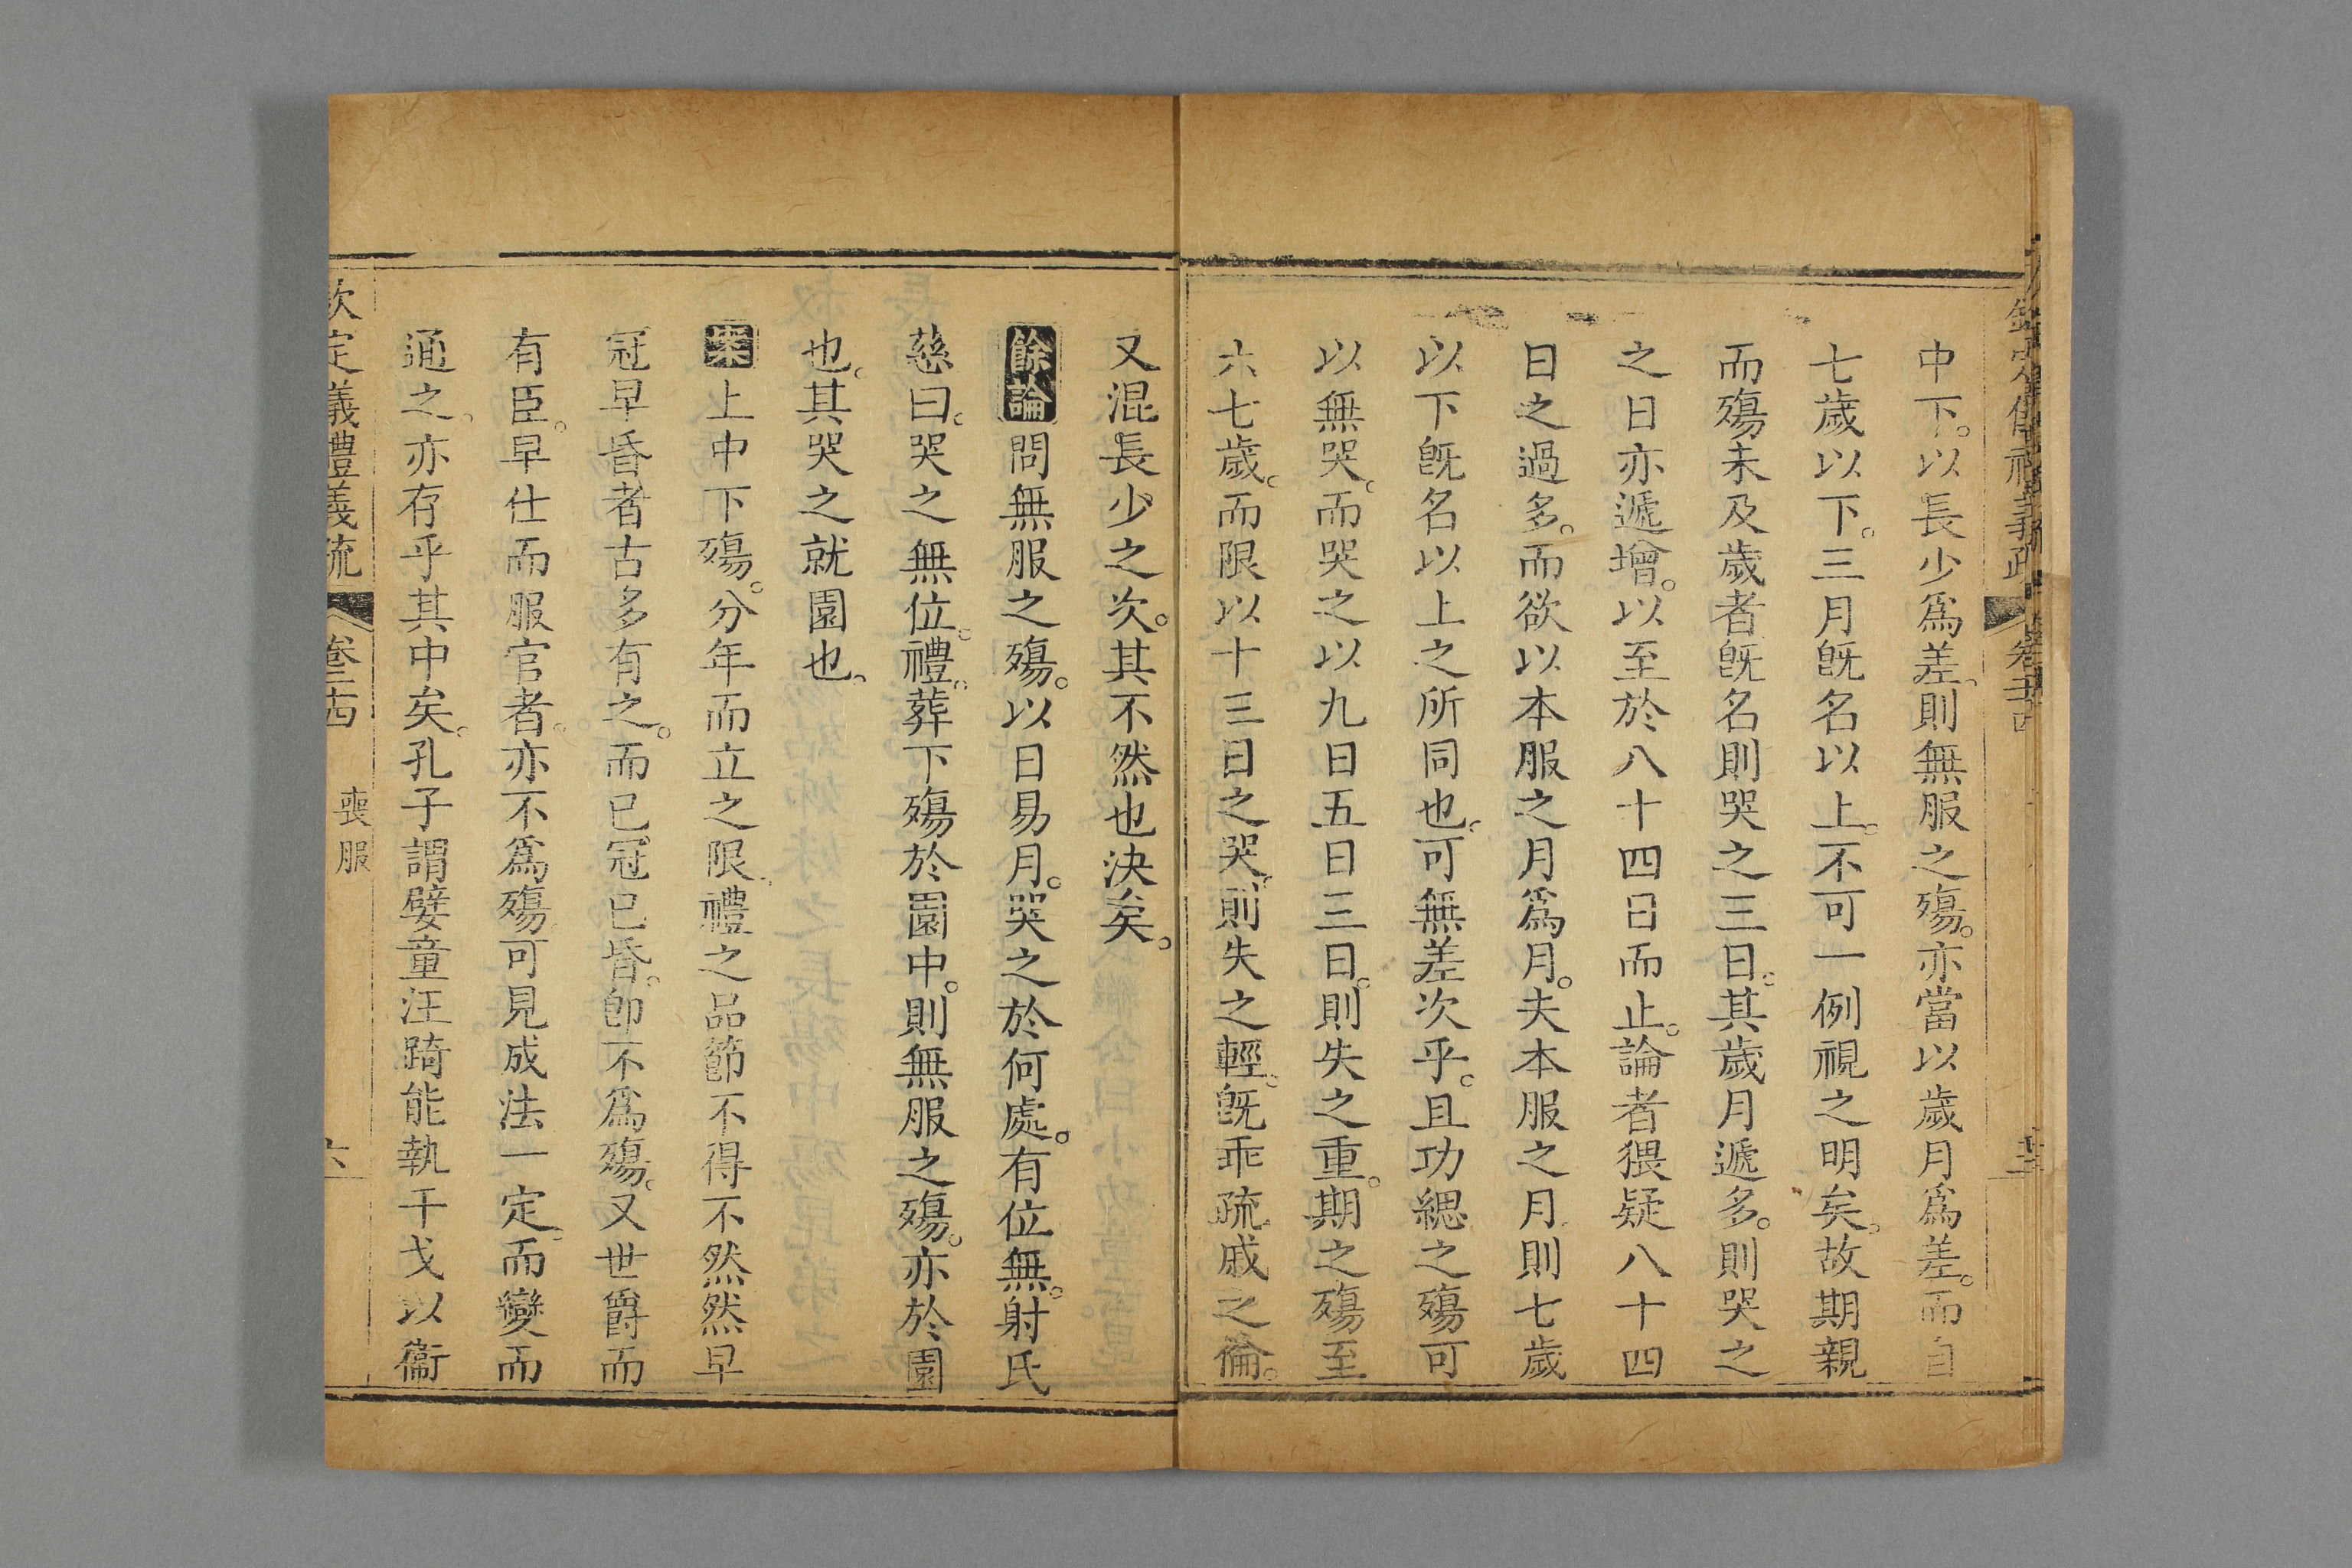 中下。以長少爲差。則無服之殤。亦當以歲月爲差。而自
七歲以下。三月旣名以上。不可一例視之明矣。故期親
而殤未及歲者旣名則哭之三日。其歲月遞多。則哭之
之日亦遞增。以至於八十四日而止。論者猥疑八十四
日之過多。而欲以本服之月爲月。夫本服之月則七歲
以下旣名以上之所同也。可無差次乎。且功緦之殤可
以無哭。而哭之以九日五日三日。則失之重。期之殤至
六七歲。而限以十三日之哭。則失之輕。旣乖疏戚之倫。
又混長少之次。其不然也決矣。
餘論問無服之殤。以日易月。哭之於何處。有位無。射氏
慈曰。哭之無位。禮。葬下殤於園中。則無服之殤。亦於園
也。其哭之就園也。
案上中下殤。分年而立之限。禮之品節不得不然然早
冠早昏者古多有之。而已冠已昏。卽不爲殤。又世爵而
有臣。早仕而服官者。亦不爲殤可見成法一定。而變而
通之。亦存乎其中矣。孔子謂嬖童汪踦能執干戈以衞
欽定儀禮義疏 卷二十四 喪服